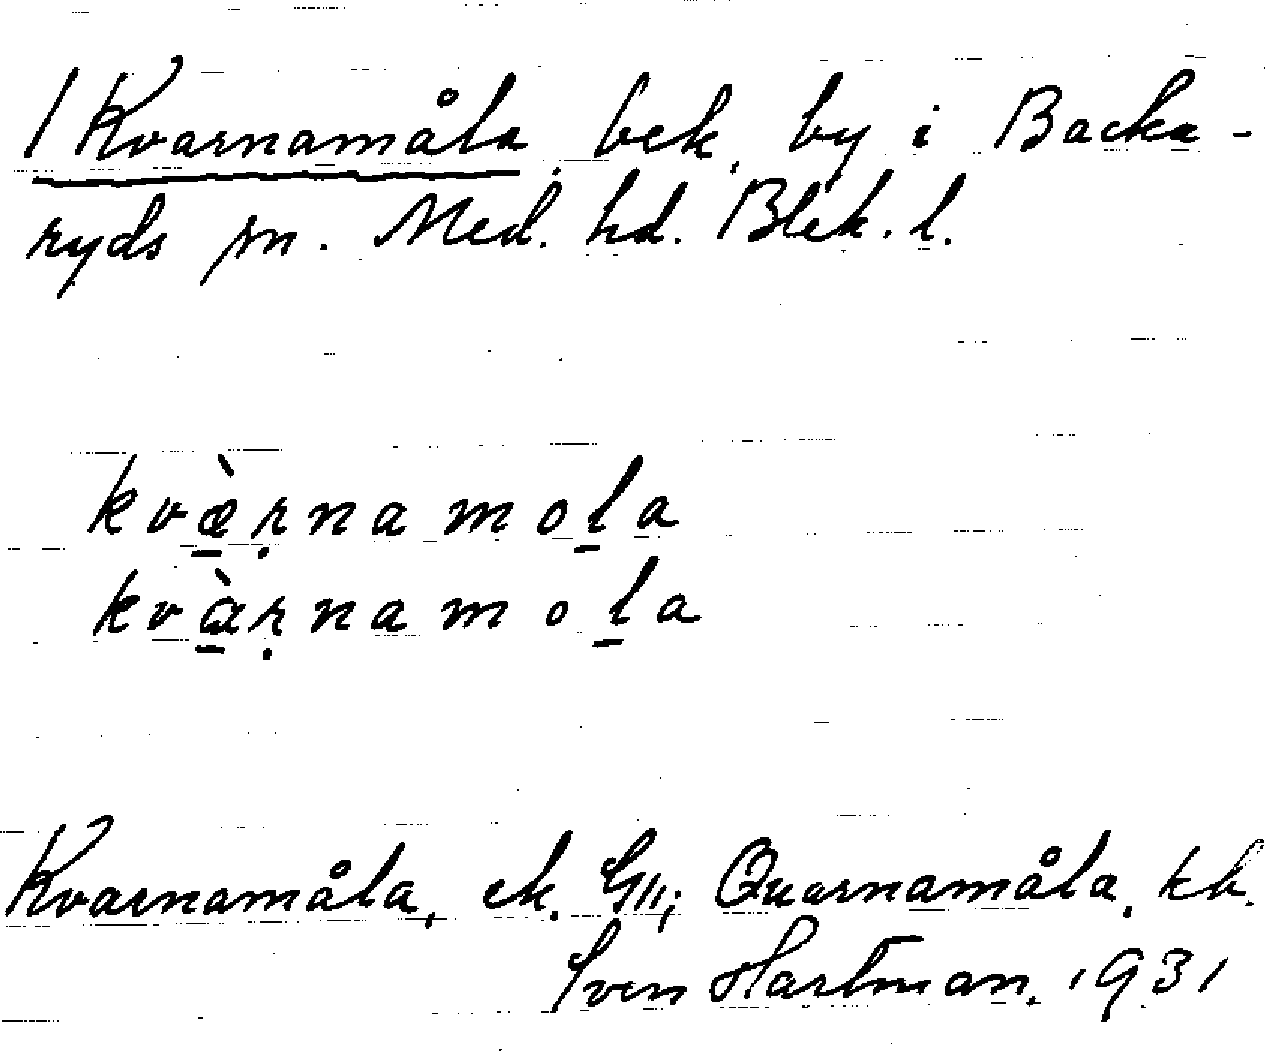 / Kvarnamåla, bek. by i Backa-
ryds sn. Med. hd. Blek. l.
kvæ̱̀ṛnamoḻa
kvà̱ṛnamoḻa
Kvarnamåla, ek. Gu; Quarnamåla, kb.
Sven Hartman. 1931